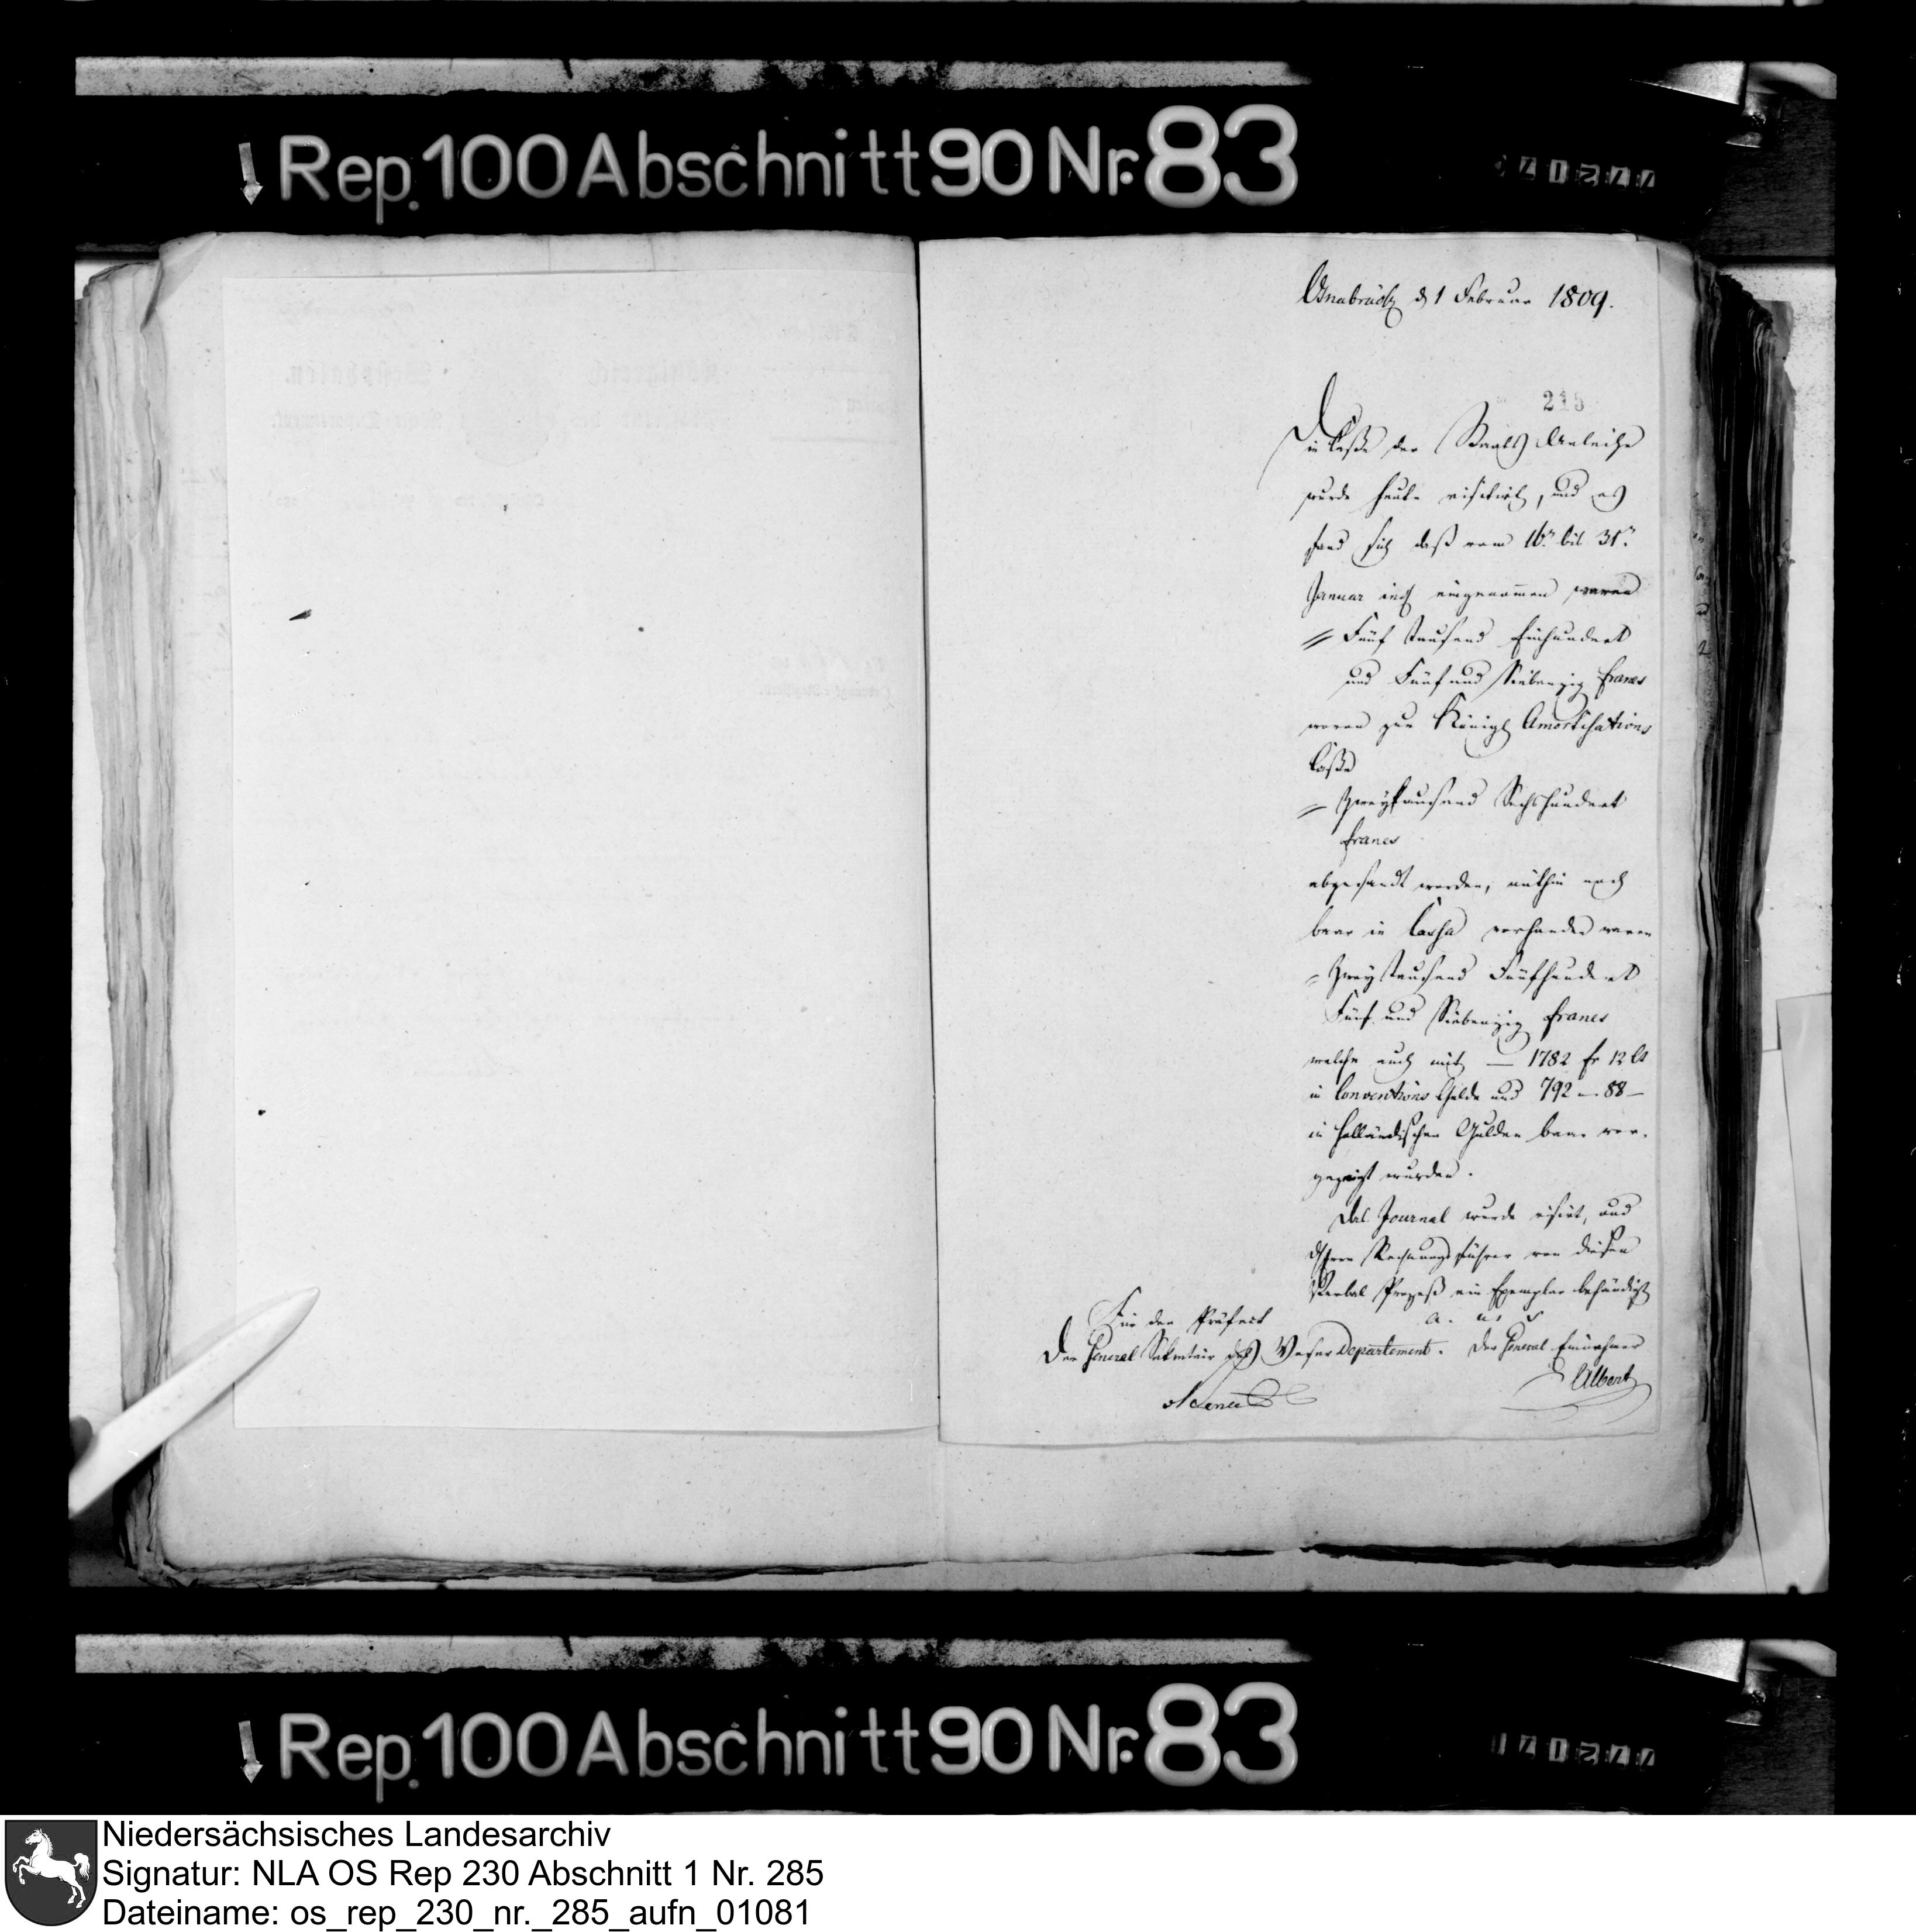 Rep. 100 Abschnitt 90 Nr. 83
Osnabrück d 1 Februar 1809.
215
Die Casse der Staats Anleihe
wurde heute visitirt, und es
fand sich daß vom 16n bis 31n
Januar incl eingenommen waren
Fünf tausend Einhundert
und Fünf und Siebenzig francs
wovon zur Königl Amortisations
Casse
Zweytausend Sechshundert
francs
abgesandt worden, mithin noch
baar in Cassa vorhanden waren
Zweytausend Fünfhundert
Fünf und Siebenzig francs
welche auch mit — 1782 fr 12 Ct
in Conventions Gelde und 792 — 88 —
in holländischen Gulden baar vor-
gezeigt wurden.
Das Journal wurde visirt, und
dem Rechnungsführer von diesem
Verbal Prozeß ein Exemplar behändigt
a. u. s
Für den Präfect
Der General Sekretair des Weser Departement. Der General Einnehmer
Albert
Rep. 100 Abschnitt 90 Nr. 83
Niedersächsisches Landesarchiv
Signatur: NLA OS Rep 230 Abschnitt 1 Nr. 285
Dateiname: os_rep_230_nr._285_aufn_01081